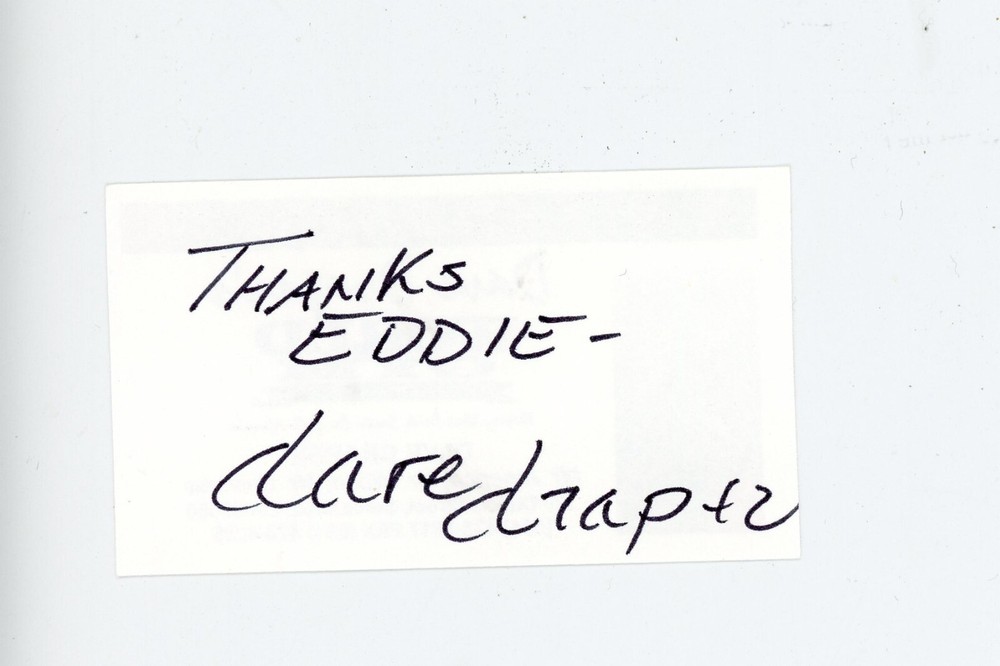 THANKS
EDDIE -
dave draper